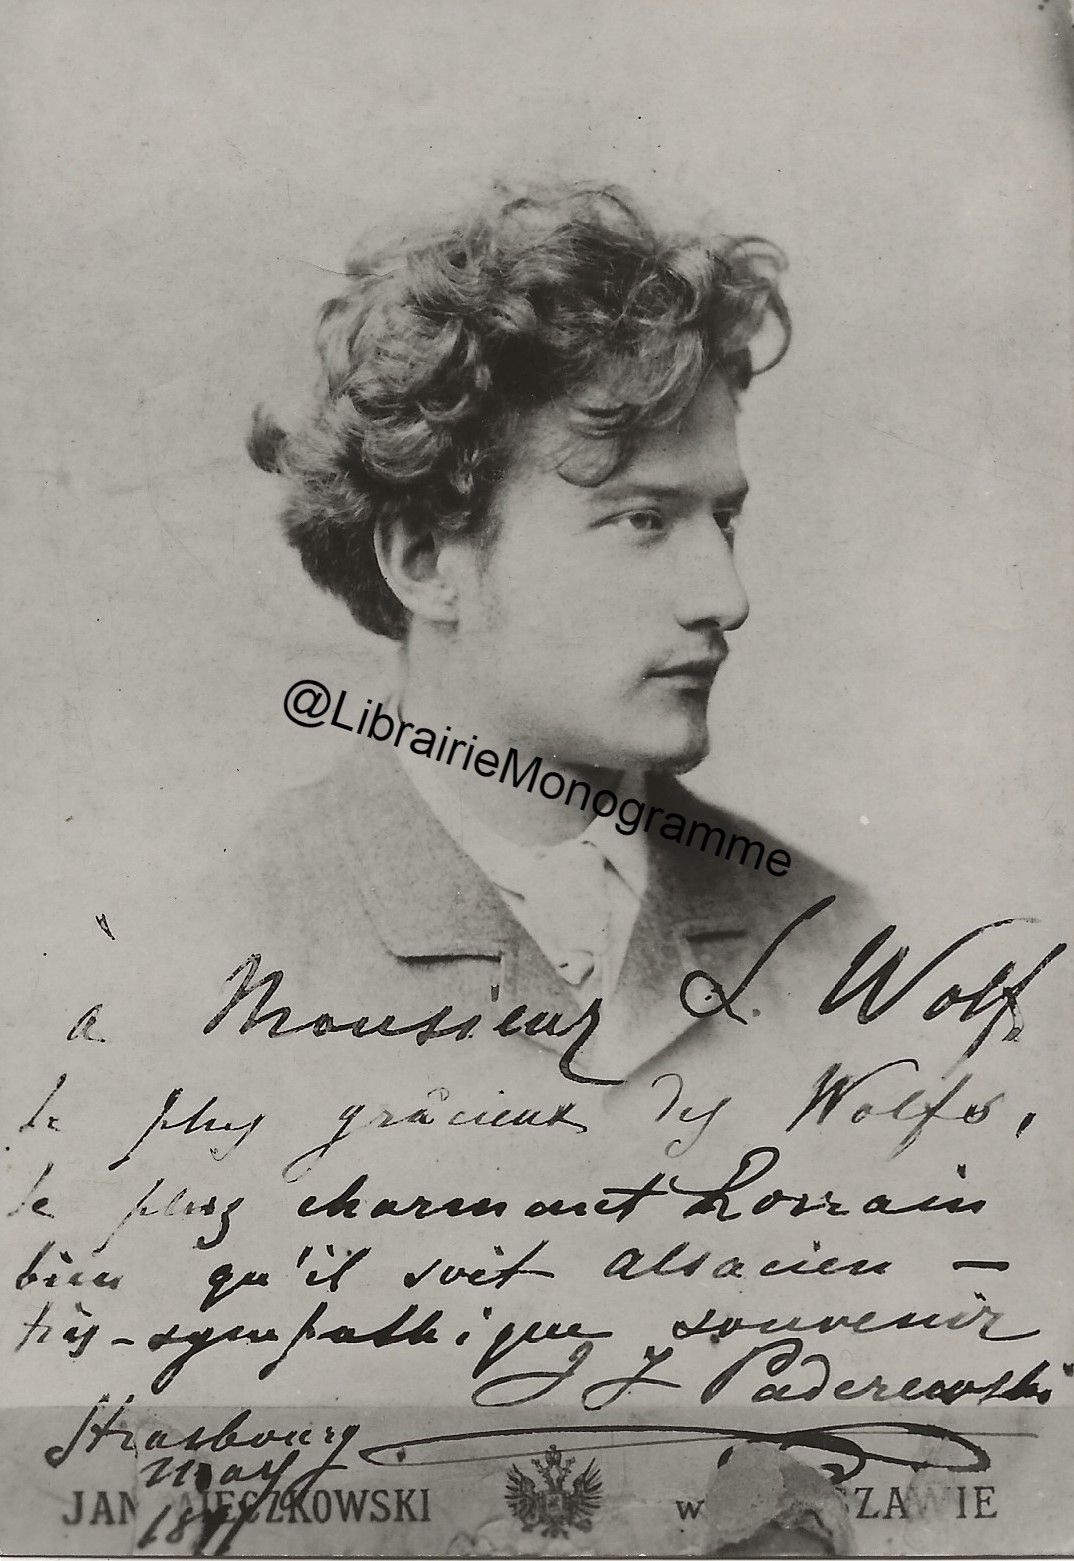 @LibrairieMonogramme
à Monsieur L. Wolf
le plus gracieux des Wolfs,
le plus charmant Lorrain
bien qu'il soit alsacien –
très-sympathique souvenir
J J Paderewski
Strasbourg
JAN MIECZKOWSKI w SZAWIE